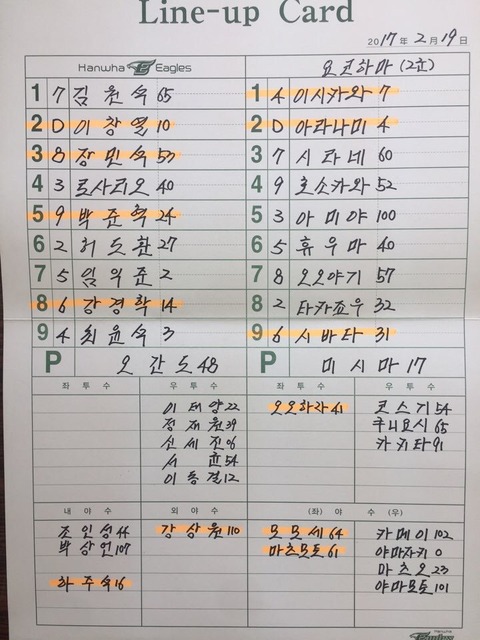 Line-up Card
2017年 2月 19日
Hanwha Eagles
요코하마 (2군)
1 7 김원석 65
2 D 이창열 10
3 8 장민석 50
4 3 로사리오 40
5 9 박준혁 24
6 2 허도환 27
7 5 임익준 2
8 6 강경학 14
9 4 최윤석 3
P 오간도 48
1 4 이시카와 7
2 D 아라나미 4
3 7 시라네 60
4 9 호소카와 52
5 3 아미야 100
6 5 휴우마 40
7 8 오오야기 57
8 2 타카죠우 32
9 6 시바타 31
P 미시마 17
좌투수
우투수
이태양 22
정재원 39
신세진 06
서균 54
이동걸 12
좌투수
오오하라 41
우투수
코스기 54
쿠니요시 65
카키타 91
내야수
조인성 44
박상언 107
하주석 16
외야수
강상원 110
(좌) 야 수 (우)
모모세 64
마츠모토 61
카메이 102
야마자키 0
마츠오 23
야마모토 101
Hanwha
Eagles